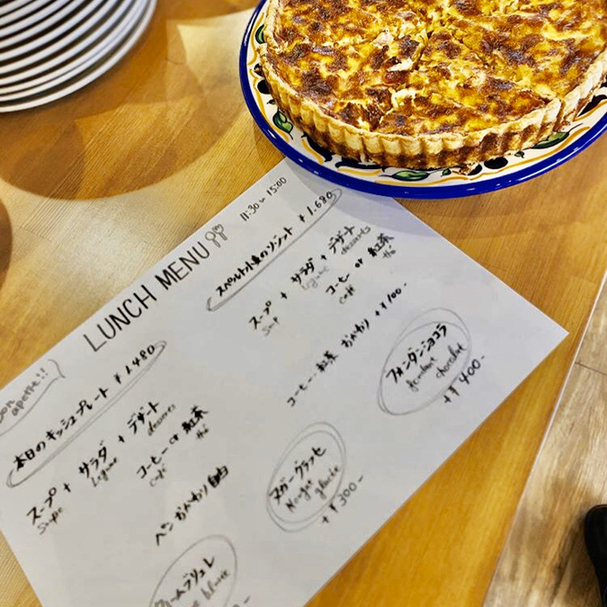 LUNCH MENU
11:30~15:00
Bon
apetit!!
本日のキッシュプレート ¥1480
スープ + サラダ + デザート
Supe Legume desserts
コーヒー or 紅茶
café thé
パン おかわり自由
スペルト小麦のリゾット ¥1,680
スープ + サラダ + デザート
Sup legume desserts
コーヒー or 紅茶
café thé
コーヒー・紅茶 おかわり +¥100-
フォンダンショコラ
fondant chocolat
+¥400-
ヌガーグラッセ
Nougat glacée
+¥300-
ームブリュレ